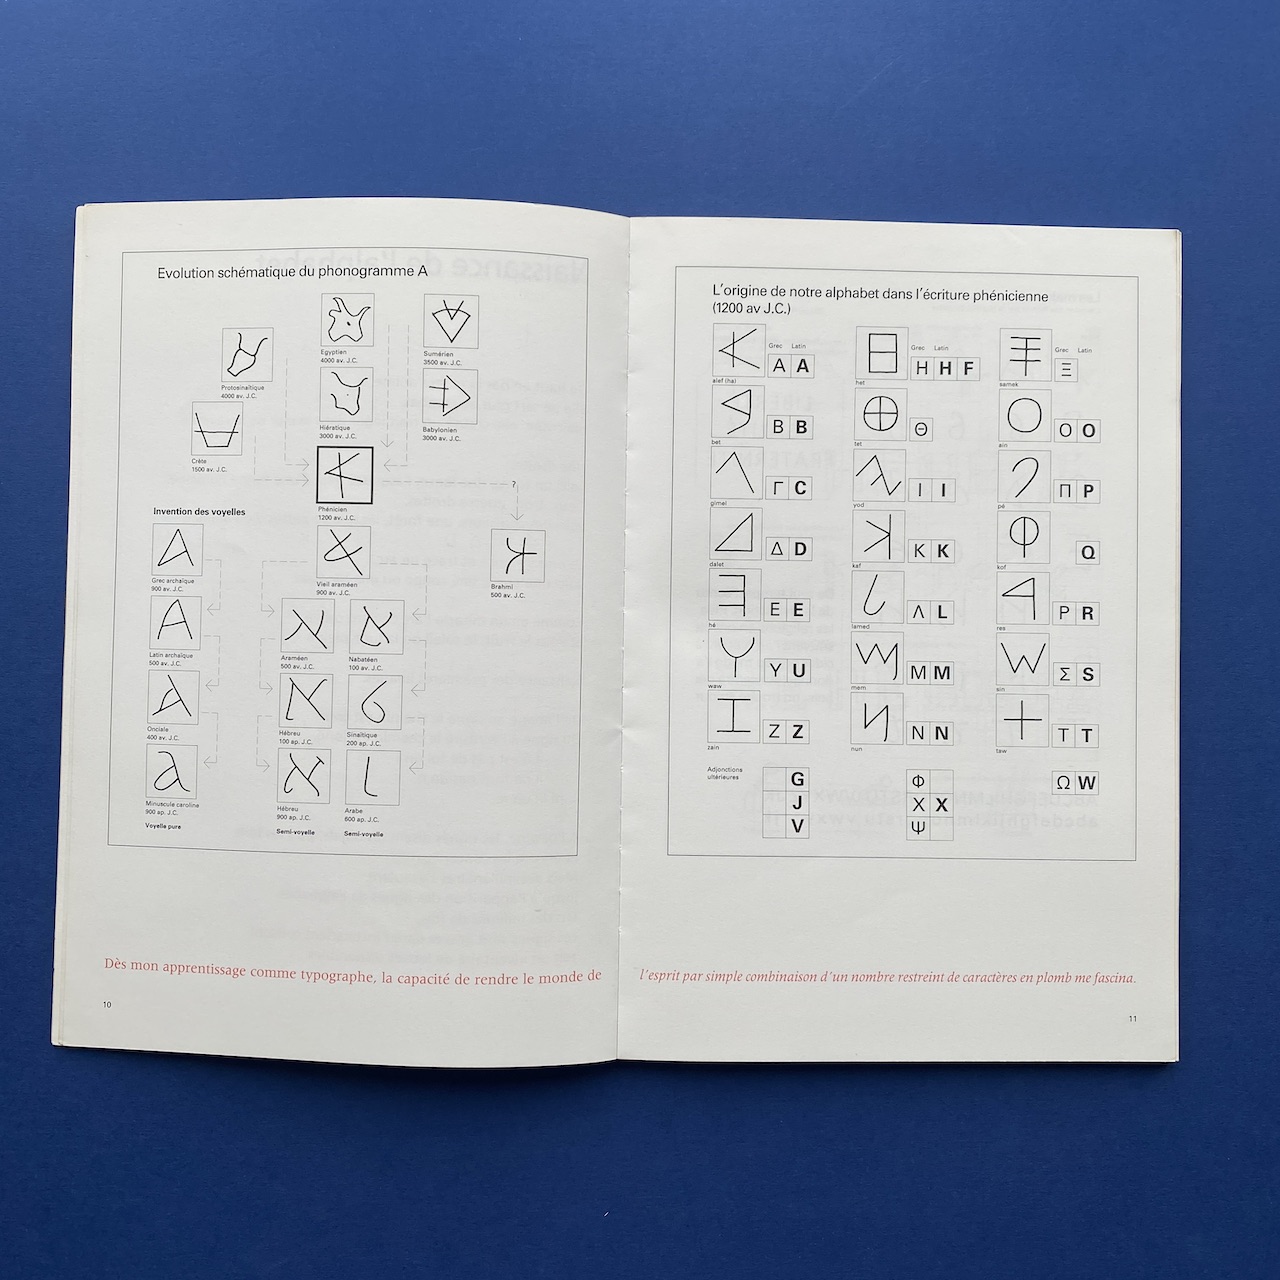 Evolution schématique du phonogramme A
Egyptien
4000 av. J.C.
Sumérien
3500 av. J.C.
Protosinaïtique
4000 av. J.C.
Hiératique
3000 av. J.C.
Babylonien
3000 av. J.C.
Crète
1500 av. J.C.
?
Phénicien
1200 av. J.C.
Invention des voyelles
Grec archaïque
900 av. J.C.
Vieil araméen
900 av. J.C.
Brahmi
500 av. J.C.
Latin archaïque
500 av. J.C.
Araméen
500 av. J.C.
Nabatéen
100 av. J.C.
Onciale
400 av. J.C.
Hébreu
100 ap. J.C.
Sinaïtique
200 ap. J.C.
Minuscule caroline
900 ap. J.C.
Hébreu
900 ap. J.C.
Arabe
600 ap. J.C.
Voyelle pure
Semi-voyelle
Semi-voyelle
Dès mon apprentissage comme typographe, la capacité de rendre le monde de
10
L'origine de notre alphabet dans l'écriture phénicienne
(1200 av J.C.)
Grec Latin
Α A
alef (ha)
Β B
bet
Γ C
gimel
Δ D
dalet
Ε E
hé
Υ U
waw
Ζ Z
zain
Grec Latin
Η H F
het
Θ
tet
Ι I
yod
Κ K
kaf
Λ L
lamed
Μ M
mem
Ν N
nun
Grec Latin
Ξ
samek
Ο O
ain
Π P
pé
Q
kof
Ρ R
res
Σ S
sin
Τ T
taw
Adjonctions
ultérieures
G
J
V
Φ
Χ X
Ψ
Ω W
l'esprit par simple combinaison d'un nombre restreint de caractères en plomb me fascina.
11